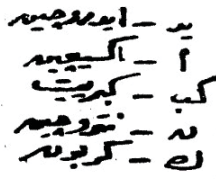 يد - ايدروجين
ا - اكسيجين
كب - كبريت
ن - نتروجين
ك - كربون